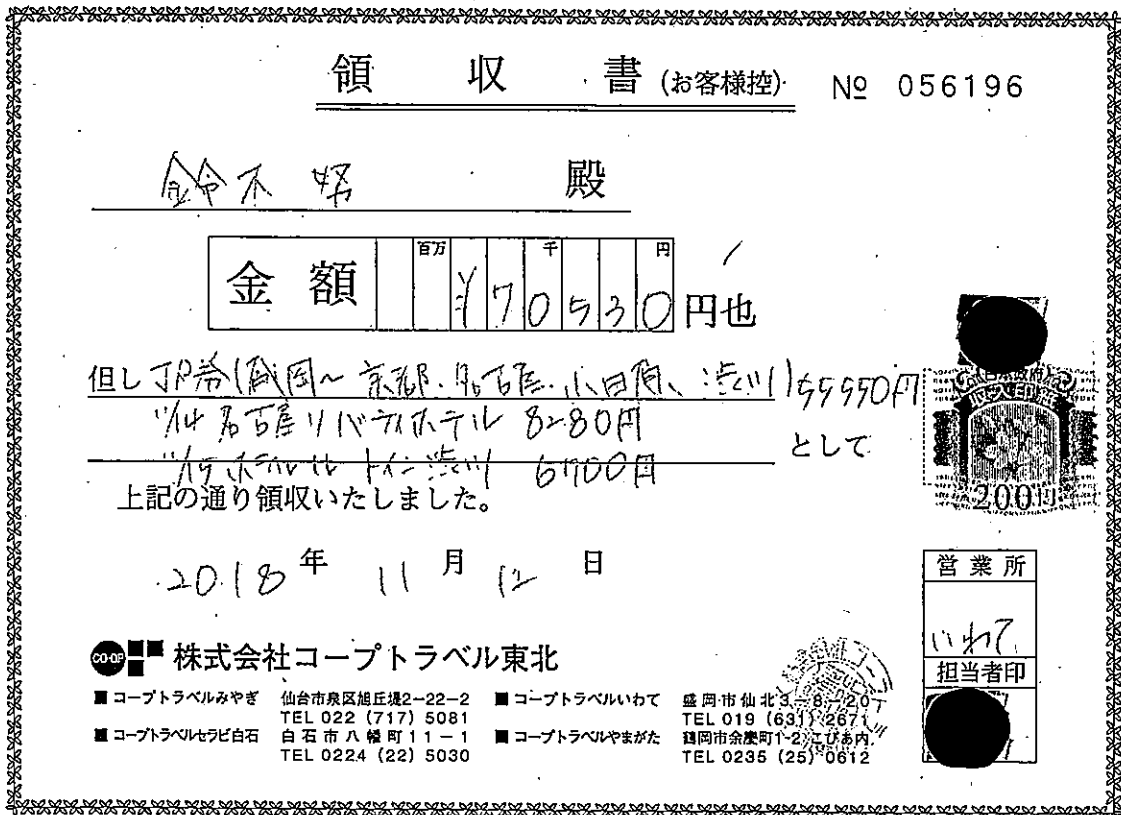 領収書(お客様控) № 056196
鈴木 努 殿
金額 百万 千 円 ¥70530 円也
但し JR券(盛岡〜京都、名古屋、小田原、渋川) 55550円
名古屋リバティホテル 8280円
ホテルルートイン渋川 6700円 として
上記の通り領収いたしました。
2018年 11月 12日
営業所
いわて
担当者印
CO・OP 株式会社コープトラベル東北
■コープトラベルみやぎ 仙台市泉区旭丘堤2-22-2
TEL 022 (717) 5081
■コープトラベルセラビ白石 白石市八幡町11-1
TEL 0224 (22) 5030
■コープトラベルいわて 盛岡市仙北3-8-20
TEL 019 (631) 2671
■コープトラベルやまがた 鶴岡市余慶町1-2 こぴあ内
TEL 0235 (25) 0612
収入印紙
200円